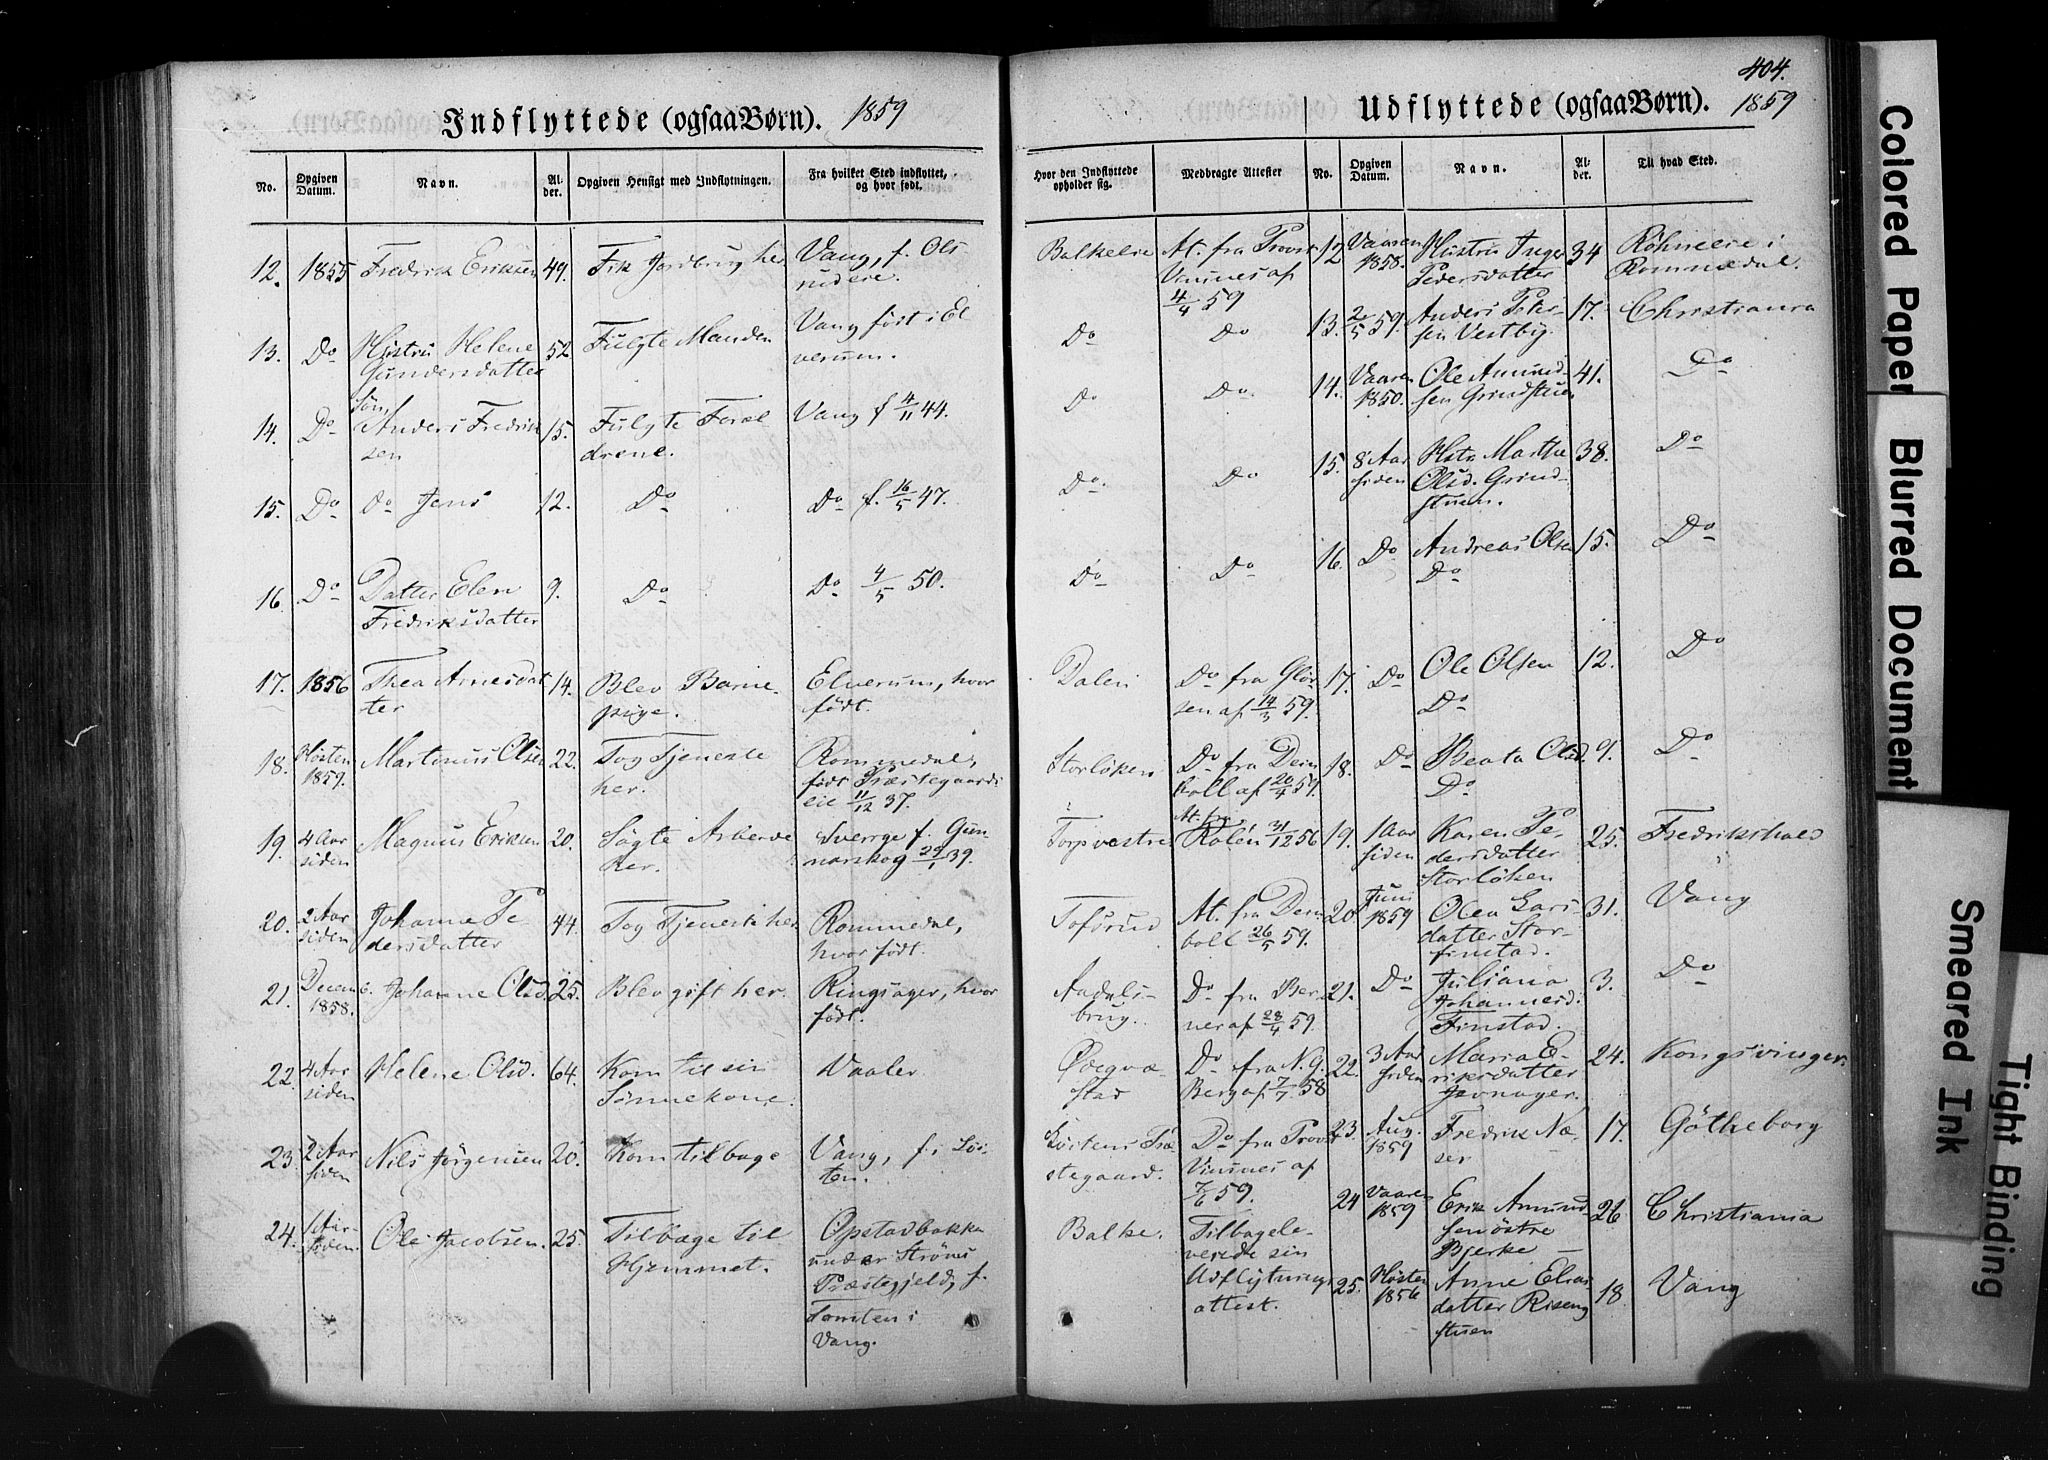 404.
Indflyttede (ogsaa Børn). 1859
No. Opgiven Datum. Navn. Alder. Opgiven Hensigt med Indflytningen. Fra hvilket Sted indflyttet, og hvor født. Hvor den Indflyttede opholder sig. Medbragte Attester
12. 1855 Fredrik Eriksen 49. Fik Jordbrug her Vang, f. Balkeeie At. fra Provst Vinsnes af 4/4 59
13. Do Hustru Helene Gundersdatter 52 Fulgte Manden Vang født i Elverum. Do Do
14. Do Søn Anders Fredriksen 15. Fulgte Forældrene. Vang f 4/11 44. Do Do.
15. Do do Jens 12. Do Do f. 16/5 47. Do. Do
16. Do Datter Elen Fredriksdatter 9. Do Do 4/5 50. Do Do
17. 1856 Thea Arnesdatter 14. Blev Barnepige. Elverum, hvor født. Dalen Do fra Glørsen af 14/3 59.
18. Høsten 1859. Martinus Olsen 22. Tog Tjeneste her. Rommedal, født Præstegaardseie 11/12 37. Storløken Do fra Dernboll af 20/4 59.
19. 4 Aar siden Magnus Eriksen 20. Søgte Arbeide her. Sverrge f. Gunnarskog 29/1 39. Torp vestre At. fra Rolén 31/12 56
20. 2 Aar siden Johanne Pedersdatter 44. Tog Tjeneste her Rommedal, hvor født. Tofsrud At. fra Dernboll 26/5 59.
21. Decemb. 1858. Johanne Olsd. 25. Blev gift her. Ringsager, hvor født. Aadalsbrug. Do fra Berner af 28/4 59.
22. 4 Aar siden Helene Olsd. 64. Kom til sin Sønnekone. Vaaler Do fra N. G. Berg af 7/7 58
23. 2 Aar siden Nils Jørgensen 20. Kom tilbage Vang, f. i Løiten. Løitens Præstegaard. Do fra Provst Vinsnes af 7/6 59.
24. 1 Aar siden. Ole Jacobsen. 25. Tilbage til Hjemmet. Opstadbakke under Strøms Præstegjeld, f. Tomten i Vang. Balke. Tilbageleverede sin Udflytnings attest.
Udflyttede (ogsaa Børn). 1859
No. Opgiven Datum. Navn. Alder. Til hvad Sted.
12 Vaaren 1858. Hustru Inger Pedersdatter 34 i Rommedal.
13. 2/5 59. Anders Petersen Vestby. 17. Christiania
14. Vaaren 1850. Ole Amundsen Grindstuen 41. Do
15. 8 Aar siden Hstr Marthe Olsd. Grindstuen. 38. Do
16. Do Andreas Olsen Do 15. Do
17. Do Ole Olsen Do 12. Do
18. Do Beata Olsd Do 9. Do
19. 1 Aar siden Karen Pedersdatter Storløken 25. Fredrikshald
20 Juni 1859 Olea Larsdatter Storfinstad. 31. Vang
21. Do Juliana Johannesd. Finstad. 3. Do
22. 3 Aar siden Maria Eriksdatter Jevnager. 24. Kongsvinger.
23. Aug. 1859 Fredrik Næser 17. Götheborg
24 Vaaren 1859 Erik Amundsen østre Bjerke 26 Christiania
25. Høsten 1856 Anne datter 18. Vang
Colored Paper
Blurred Document
Smeared Ink
Tight Binding